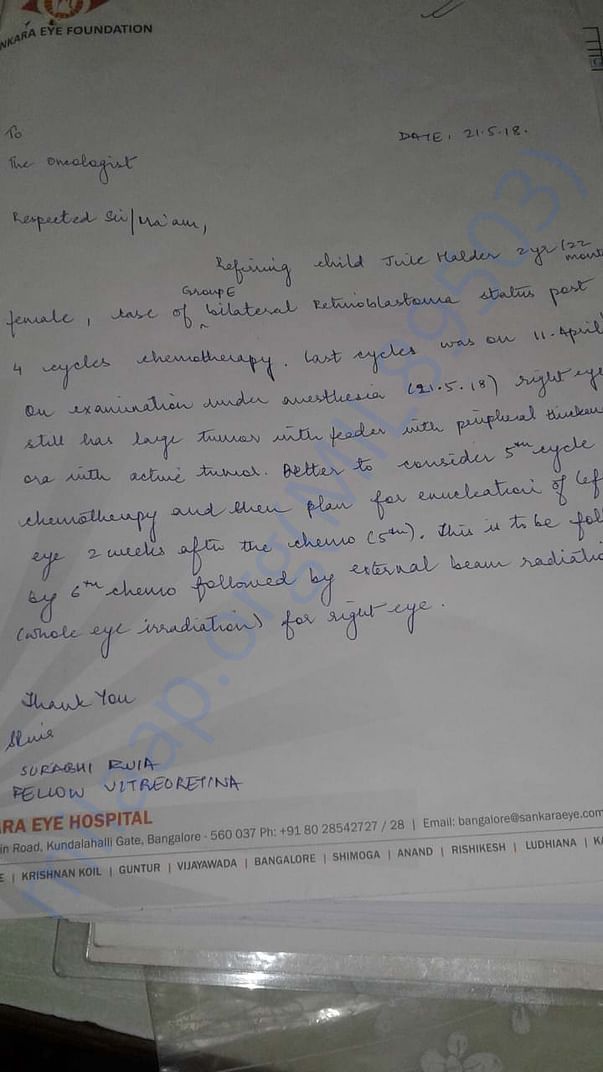 NKARA EYE FOUNDATION
To
DATE, 21.5.18.
The Oncologist
Respected Sir/Ma'am,
Refining child Juie Halder 2yr (22
month
Group E
female, case of ^ bilateral Retinoblastoma status post
4 cycles chemotherapy. Last cycles was on 11-April
On examination under anesthesia (21.5.18) right eye
still has large tumor with feeder with peripheral thicken
ora with active tumor. Better to consider 5th cycle
chemotherapy and then plan for enucleation of lef
eye 2 weeks after the chemo (5th). This is to be fol
by 6th chemo followed by external beam radiatio
(whole eye irradiation) for right eye.
Thank You
SURABHI RUIA
FELLOW VITREORETINA
RA EYE HOSPITAL
in Road, Kundalahalli Gate, Bangalore - 560 037 Ph: +91 80 28542727 / 28 | Email: bangalore@sankaraeye.com
E | KRISHNAN KOIL | GUNTUR | VIJAYAWADA | BANGALORE | SHIMOGA | ANAND | RISHIKESH | LUDHIANA | KA
milaap.org(MIL89503)